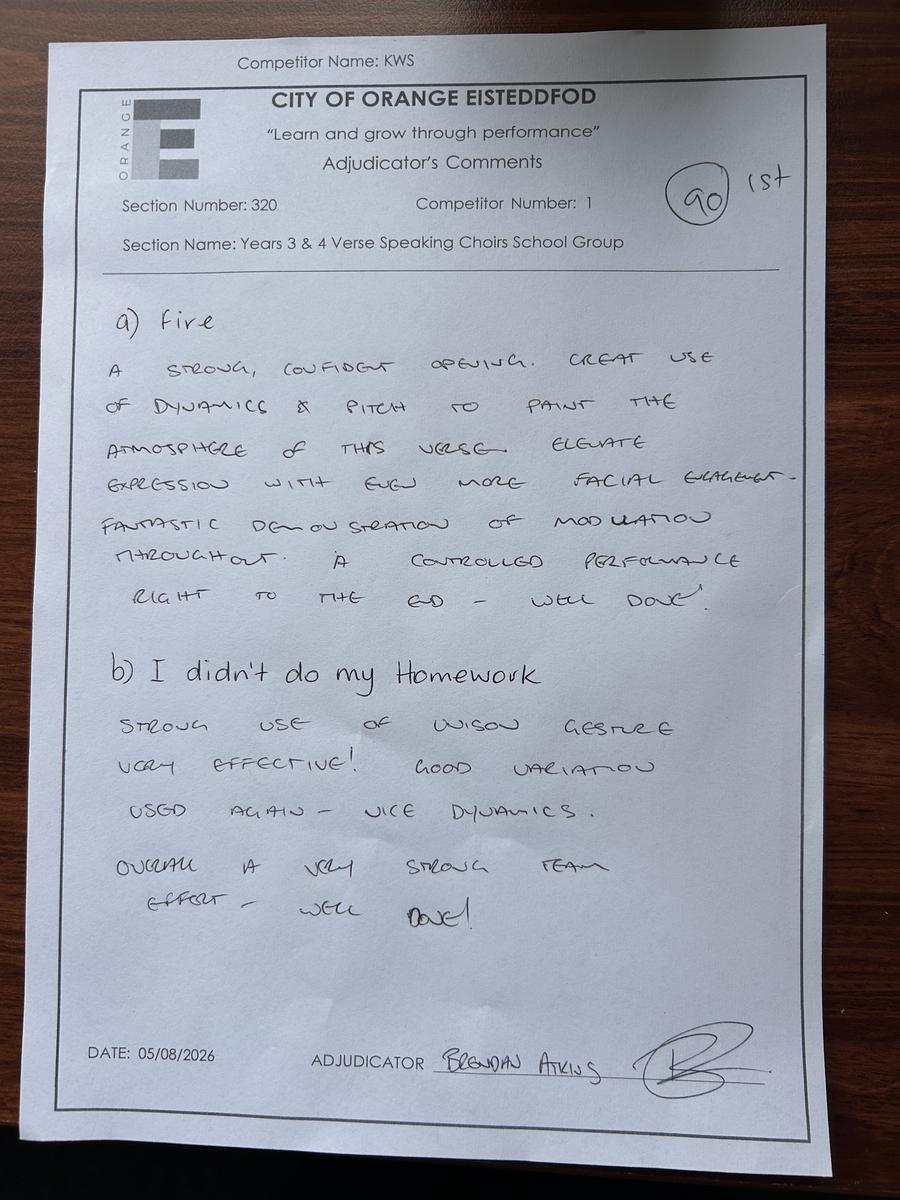 Competitor Name: KWS
ORANGE
E
CITY OF ORANGE EISTEDDFOD
"Learn and grow through performance"
Adjudicator's Comments
90 1st
Section Number: 320 Competitor Number: 1
Section Name: Years 3 & 4 Verse Speaking Choirs School Group
a) Fire
A STRONG, CONFIDENT OPENING. GREAT USE
OF DYNAMICS & PITCH TO PAINT THE
ATMOSPHERE OF THIS VERSE. ELEVATE
EXPRESSION WITH EVEN MORE FACIAL ENGAGEMENT.
FANTASTIC DEMONSTRATION OF MODULATION
THROUGHOUT. A CONTROLLED PERFORMANCE
RIGHT TO THE END - WELL DONE!
b) I didn't do my Homework
STRONG USE OF UNISON GESTURE
VERY EFFECTIVE! GOOD VARIATION
USED AGAIN - NICE DYNAMICS.
OVERALL A VERY STRONG TEAM
EFFORT - WELL DONE!
DATE: 05/08/2026 ADJUDICATOR BRENDAN ATKINS